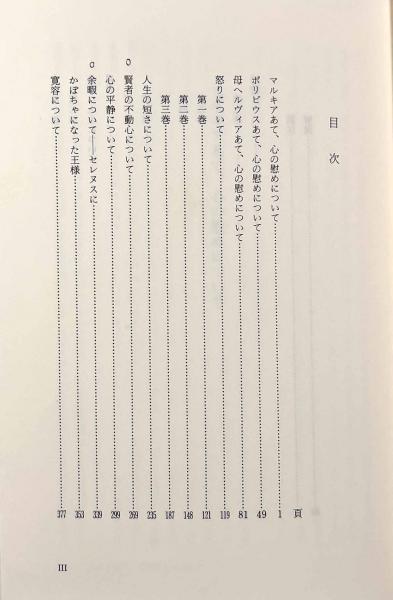 目次
頁
マルキアあて、心の慰めについて……1
ポリビウスあて、心の慰めについて……49
母ヘルヴィアあて、心の慰めについて……81
怒りについて……119
第一巻……121
第二巻……148
第三巻……187
人生の短さについて……235
○ 賢者の不動心について……269
心の平静について……299
○ 余暇について――セレヌスに……339
かぼちゃになった王様……353
寛容について……377
III